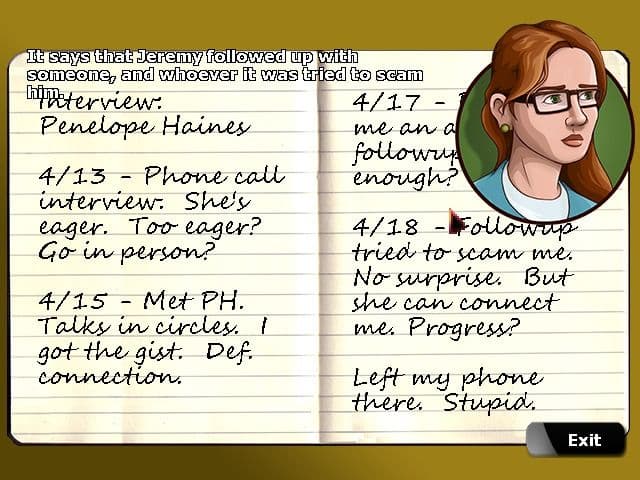 It says that Jeremy followed up with
someone, and whoever it was tried to scam
him.
Interview:
Penelope Haines
4/13 - Phone call
interview. She's
eager. Too eager?
Go in person?
4/15 - Met PH.
Talks in circles. I
got the gist. Def.
connection.
4/17 -
me an
followup
enough?
4/18 - Followup
tried to scam me.
No surprise. But
she can connect
me. Progress?
Left my phone
there. Stupid.
Exit